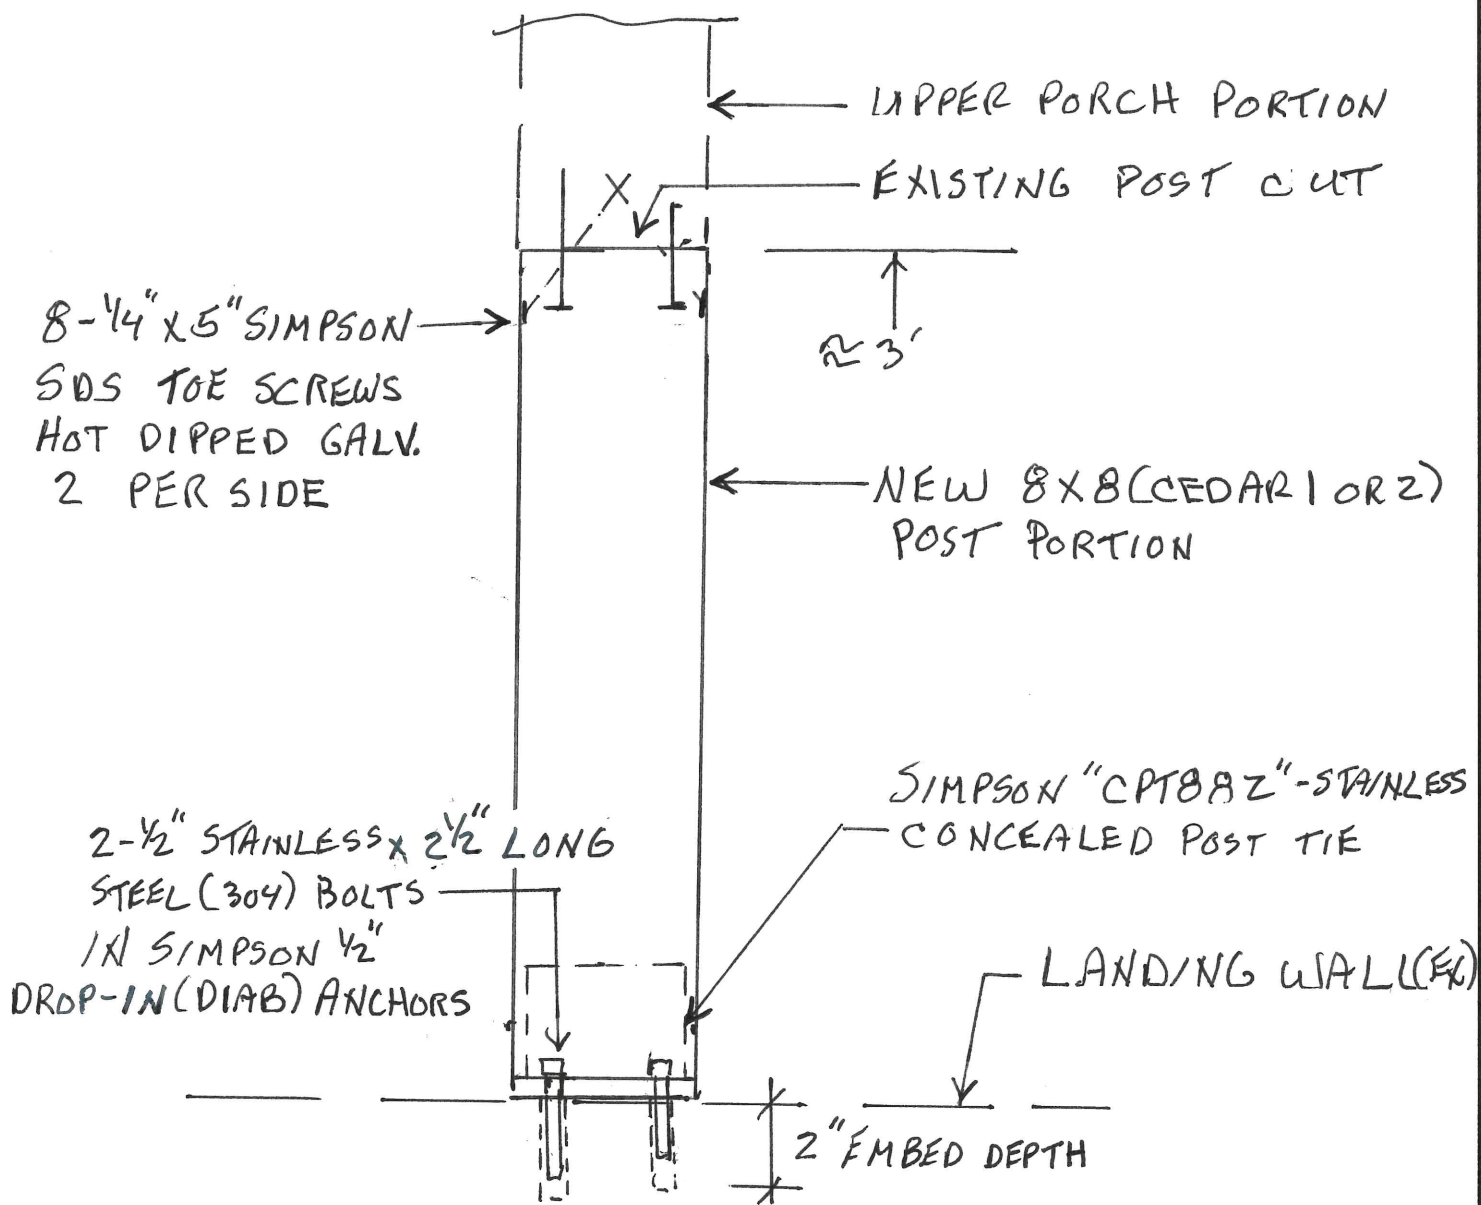 UPPER PORCH PORTION
EXISTING POST CUT
8-1/4" X 5" SIMPSON
SDS TOE SCREWS
HOT DIPPED GALV.
2 PER SIDE
≈ 3'
NEW 8X8 (CEDAR 1 OR 2)
POST PORTION
SIMPSON "CPT88Z"-STAINLESS
CONCEALED POST TIE
2-1/2" STAINLESS X 2 1/2" LONG
STEEL (304) BOLTS
IN SIMPSON 1/2"
DROP-IN (DIAB) ANCHORS
LANDING WALL (EX)
2" EMBED DEPTH